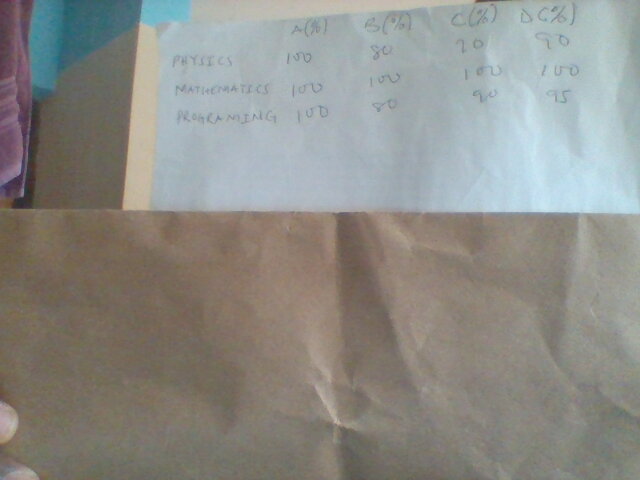 A(%) B(%) C(%) D(%)
PHYSICS 100 80 90 90
MATHEMATICS 100 100 100 100
PROGRAMING 100 80 90 95